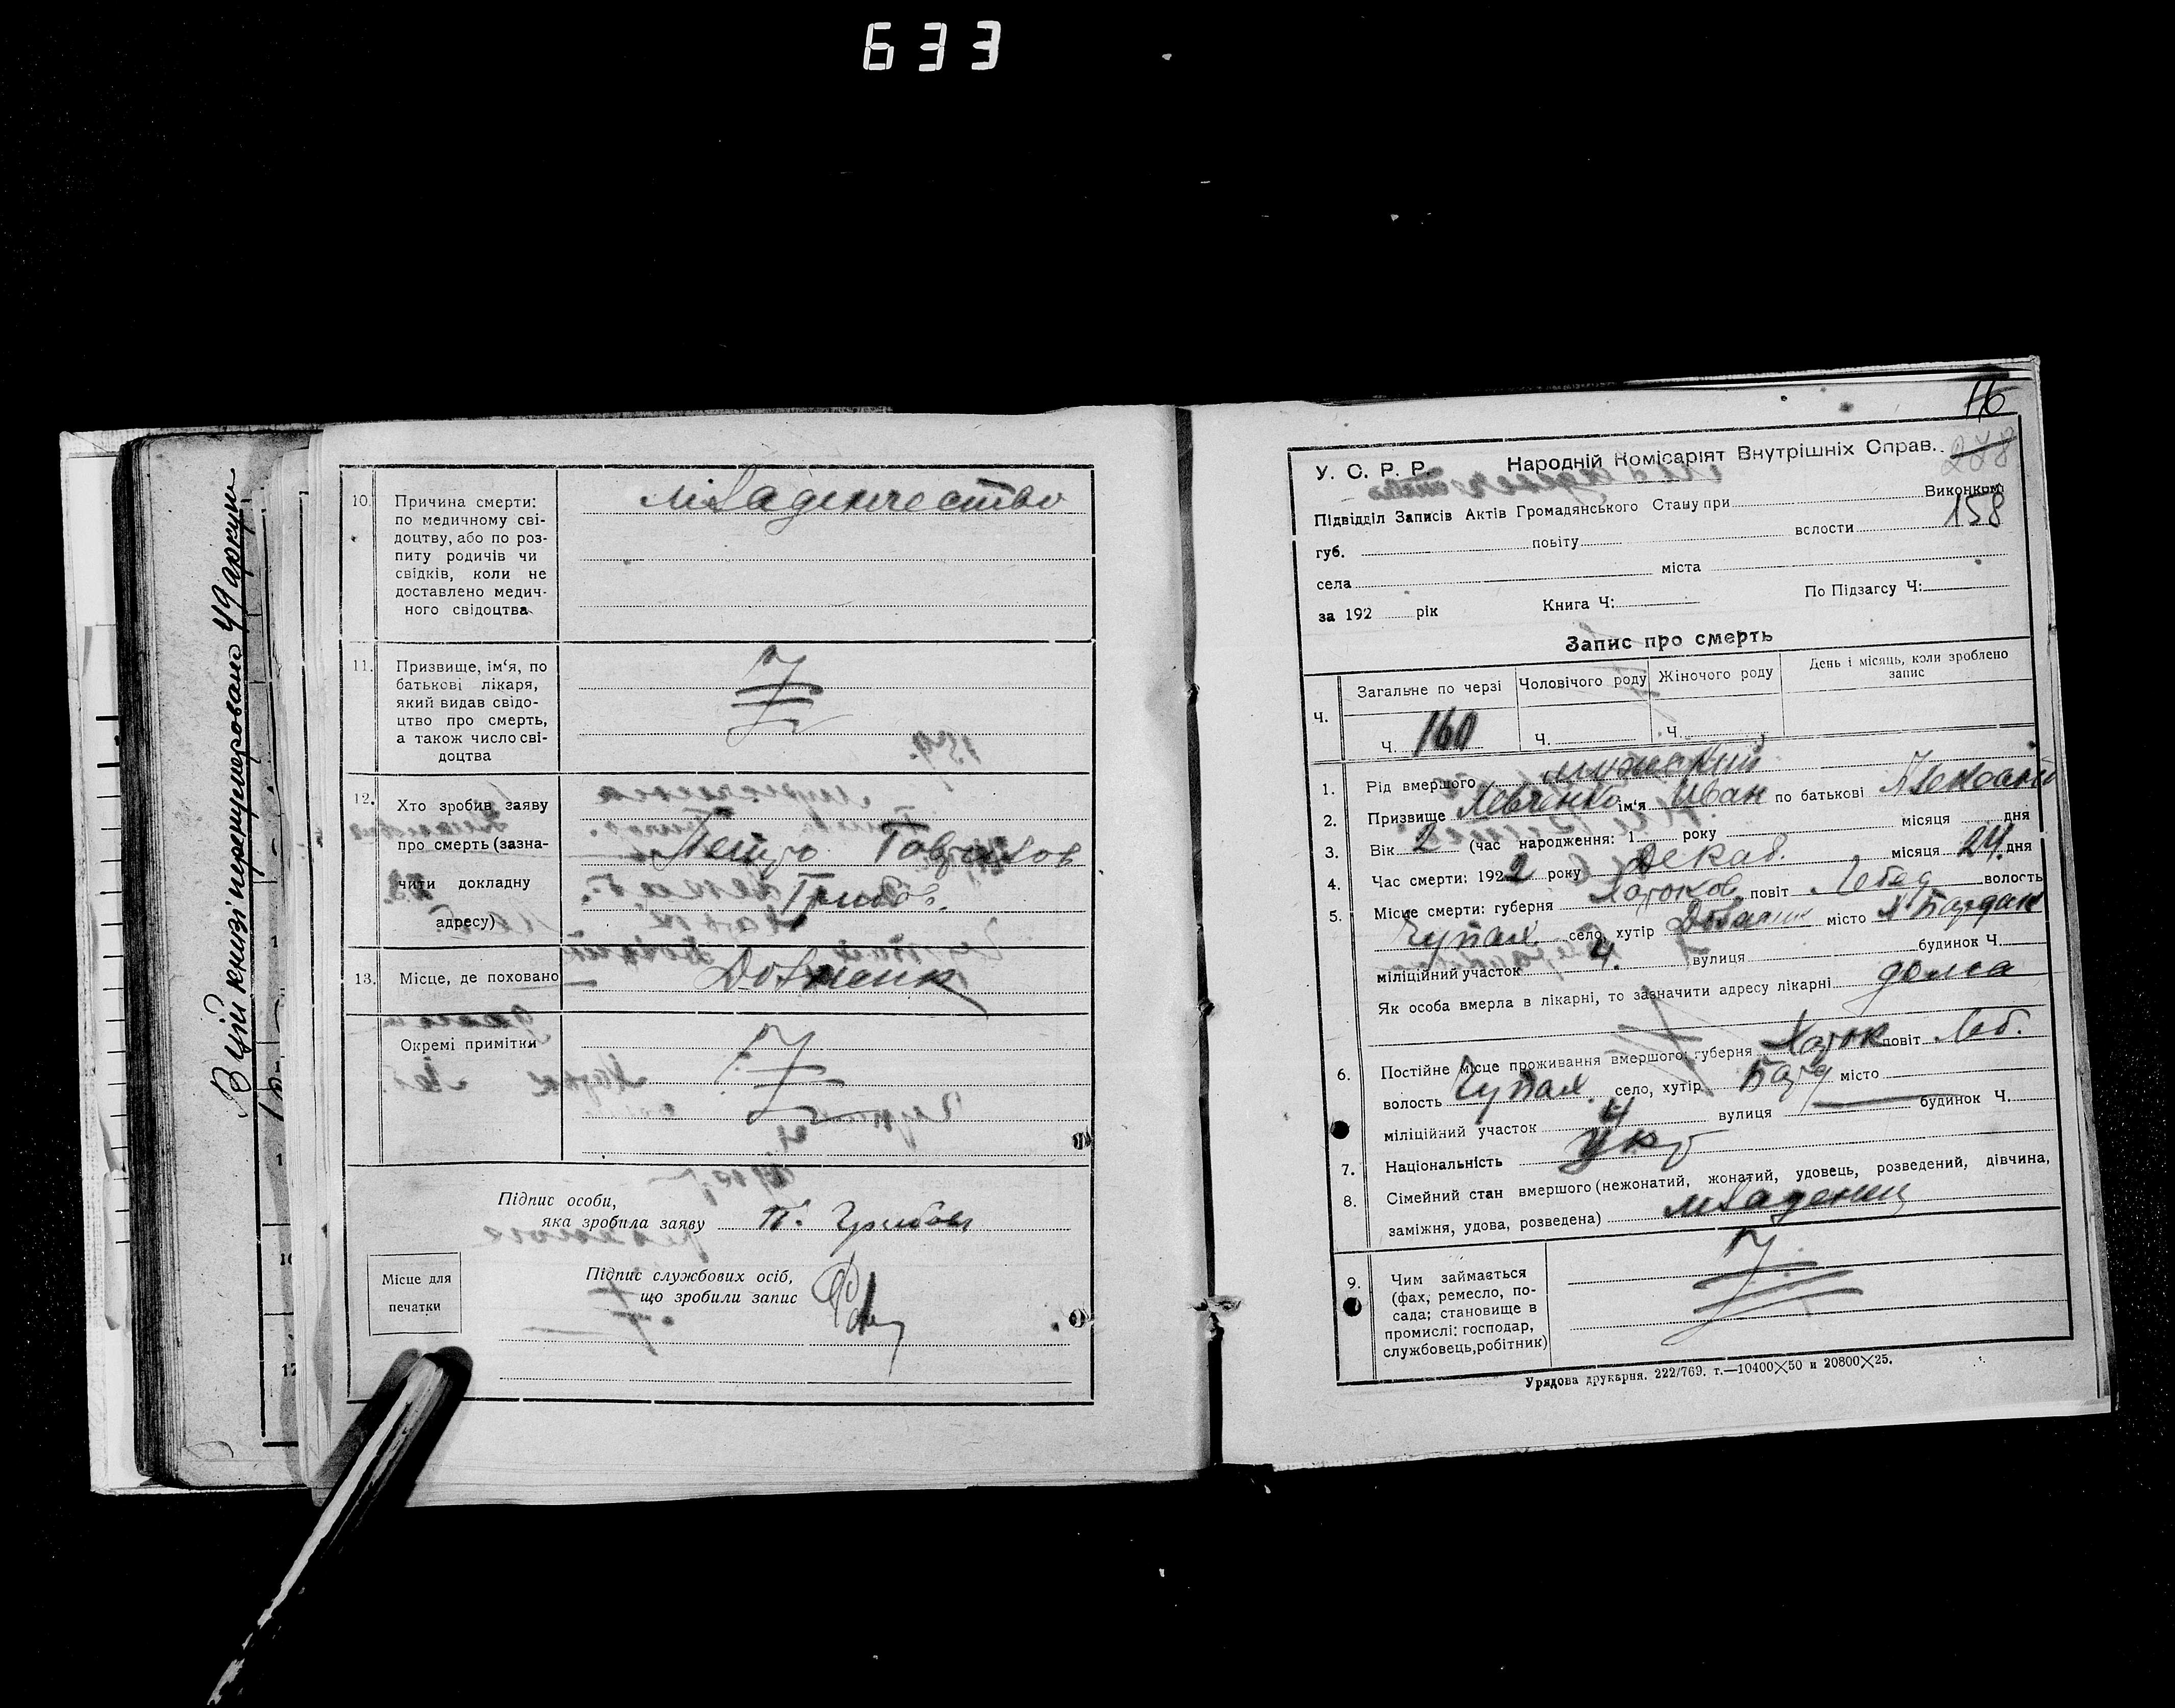 633
В цій книзі перенумеровано 49 аркуш
10. Причина смерти:
по медичному сві-
доцтву, або по роз-
питу родичів чи
свідків, коли не
доставлено медич-
ного свідоцтва
младенчество
11. Призвище, ім‘я, по
батькові лікаря,
який видав свідо-
цтво про смерть,
а також число сві-
доцтва
12. Хто зробив заяву
про смерть (зазна-
чити докладну
адресу)
Петро
13. Місце, де поховано
Окремі примітки
Підпис особи,
яка зробила заяву П.
Підпис службових осіб,
що зробили запис
Місце для
печатки
16
278
У. С. Р. Р. Народній Комісаріят Внутрішніх Справ.
Підвідділ Записів Актів Громадянського Стану при Виконком
158
губ. повіту вслости
села міста
за 192 рік Книга Ч: По Підзагсу Ч:
Запис про смерть
Ч. Загальне по черзі Чоловічого роду Жіночого роду День і місяць, коли зроблено
запис
Ч. 160 Ч. Ч.
1. Рід вмершого мужский
2. Призвище Левченко ім‘я Иван по батькові
3. Вік 2 (час народження: 1 року місяця дня
4. Час смерти: 1922 року Декаб. місяця 24 дня
5. Місце смерти: губерня Харков повіт Лебед волость
Чупах. село, хутір місто
міліційний участок 4. вулиця будинок Ч.
Як особа вмерла в лікарні, то зазначити адресу лікарні дома
6. Постійне місце проживання вмершого: губерня Харьк повіт Леб.
волость Чупах. село, хутір місто
міліційний участок 4 вулиця будинок Ч.
7. Національність укр
8. Сімейний стан вмершого (нежонатий, жонатий, удовець, розведений, дівчина,
заміжня, удова, розведена) младенец
9. Чим займається
(фах, ремесло, по-
сада; становище в
промислі: господар,
службовець, робітник)
Урядова друкарня. 222/769. т.—10400×50 и 20800×25.